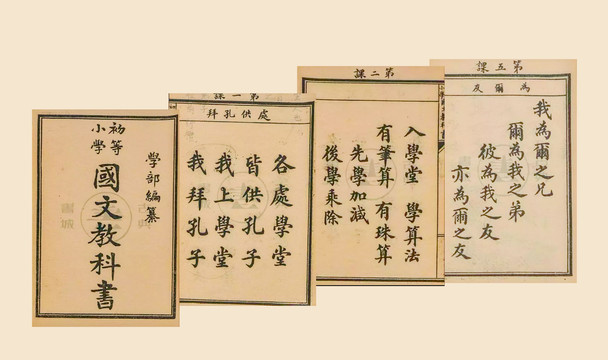 初等
小學
國文教科書
學部編纂
第一課
處供孔拜
各處學堂
皆供孔子
我上學堂
我拜孔子
第二課
入學堂 學算法
有筆算 有珠算
先學加減
後學乘除
第五課
為爾友
我為爾之兄
爾為我之弟
彼為我之友
亦為爾之友